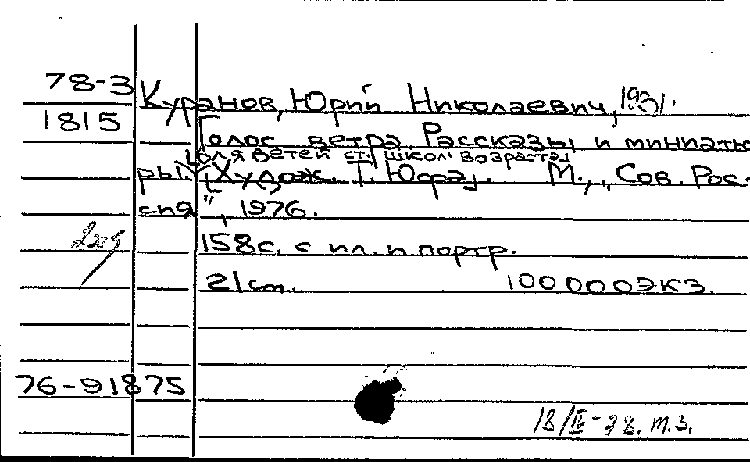 78-3 Куранов, Юрий Николаевич, 1931.
1815 Голос ветра. Рассказы и миниатю-
[Для детей ст. школ. возраста]
ры. [Худож. Г. Юдра]. М., "Сов. Рос-
сия", 1976.
158с. с ил. и портр.
21 cm. 100000экз.
76-91875
18/IV-78. т.з.